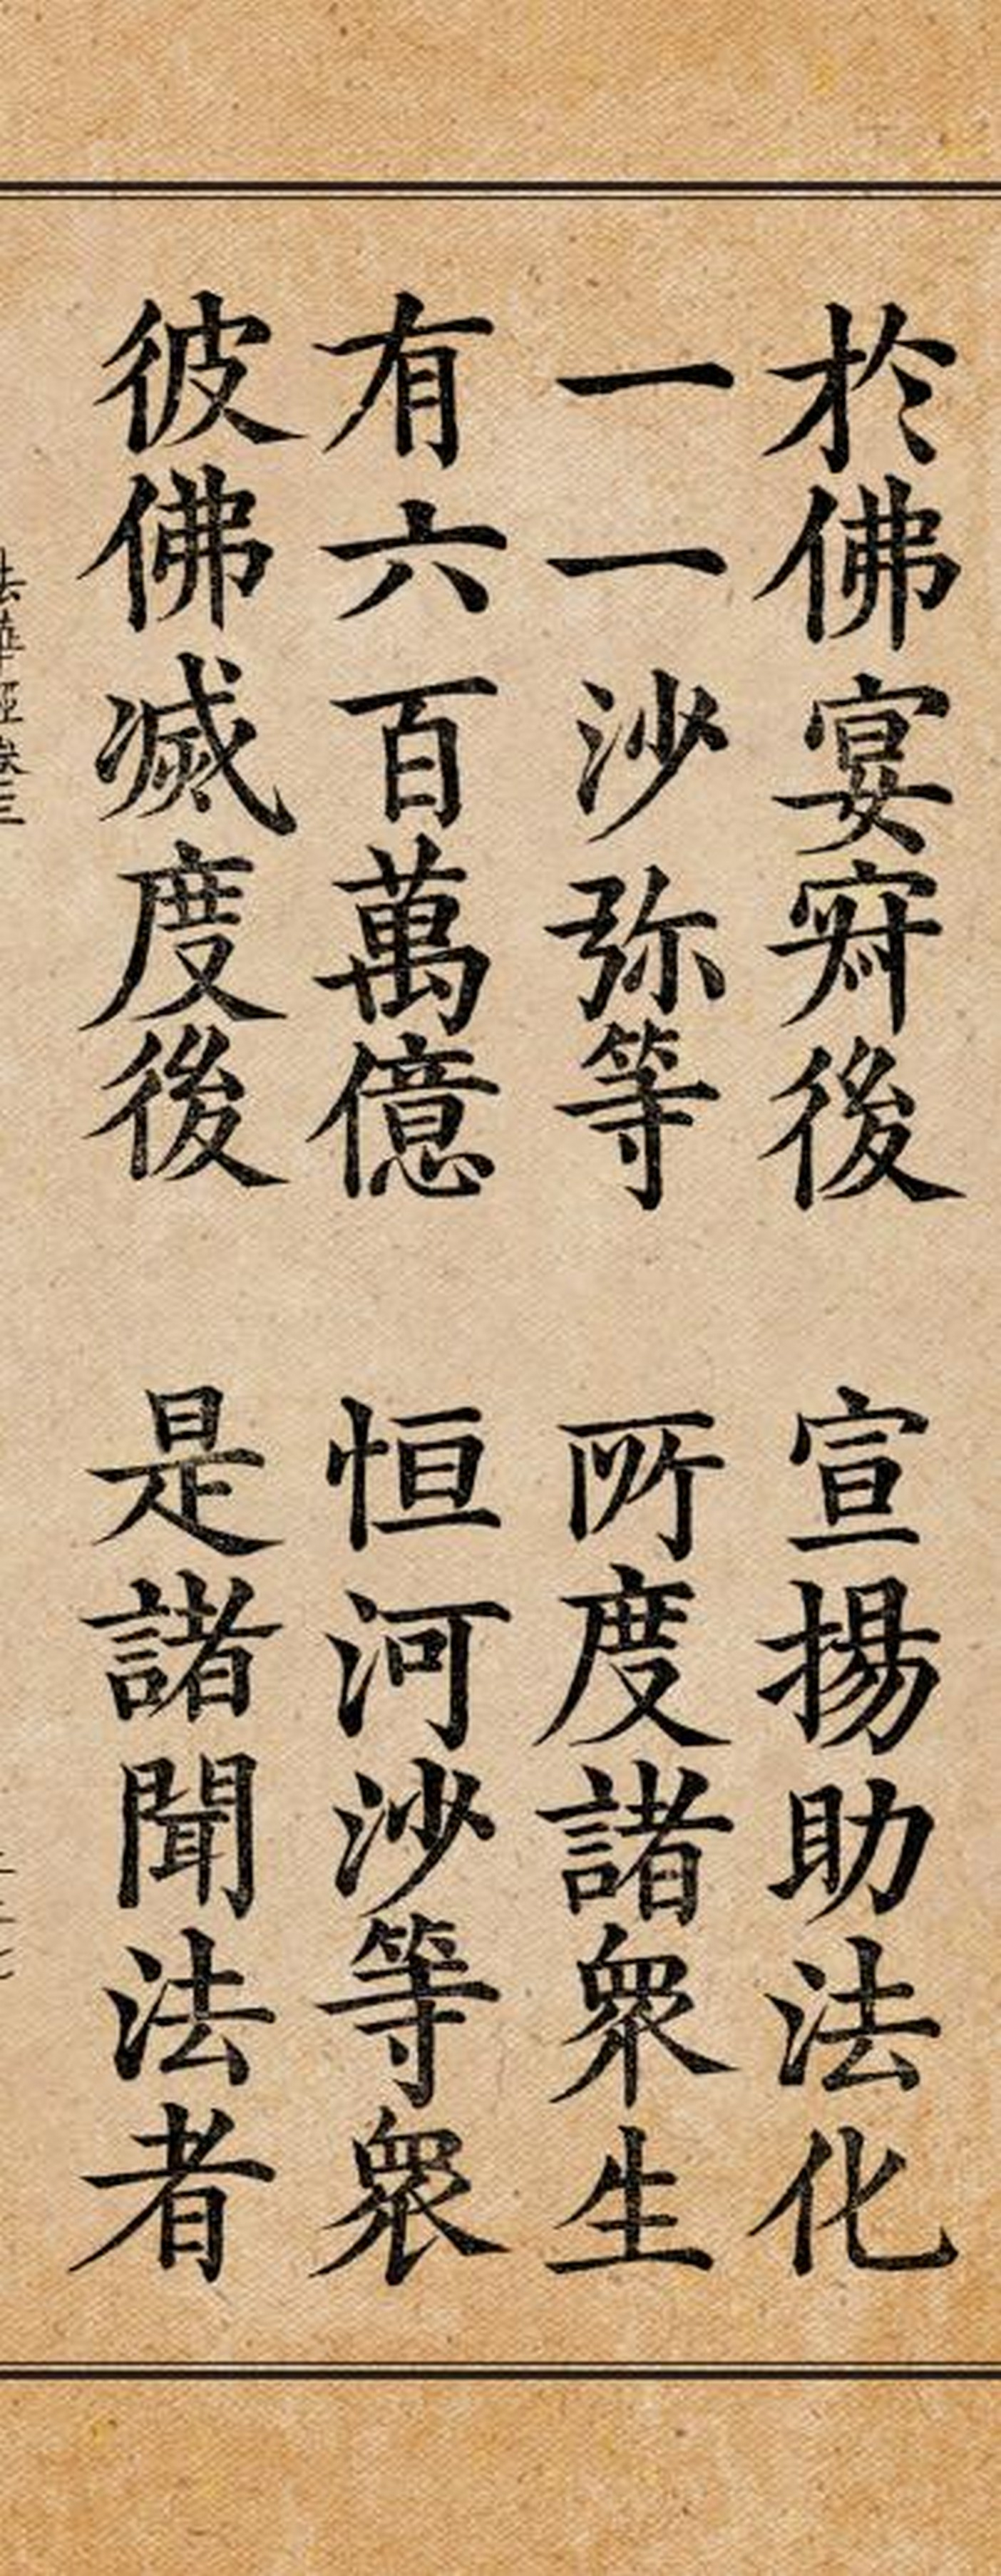 於佛宴㝛後　宣揚助法化
一一沙弥等　所度諸眾生
有六百萬億　恒河沙等眾
彼佛滅度後　是諸聞法者
法華經卷三